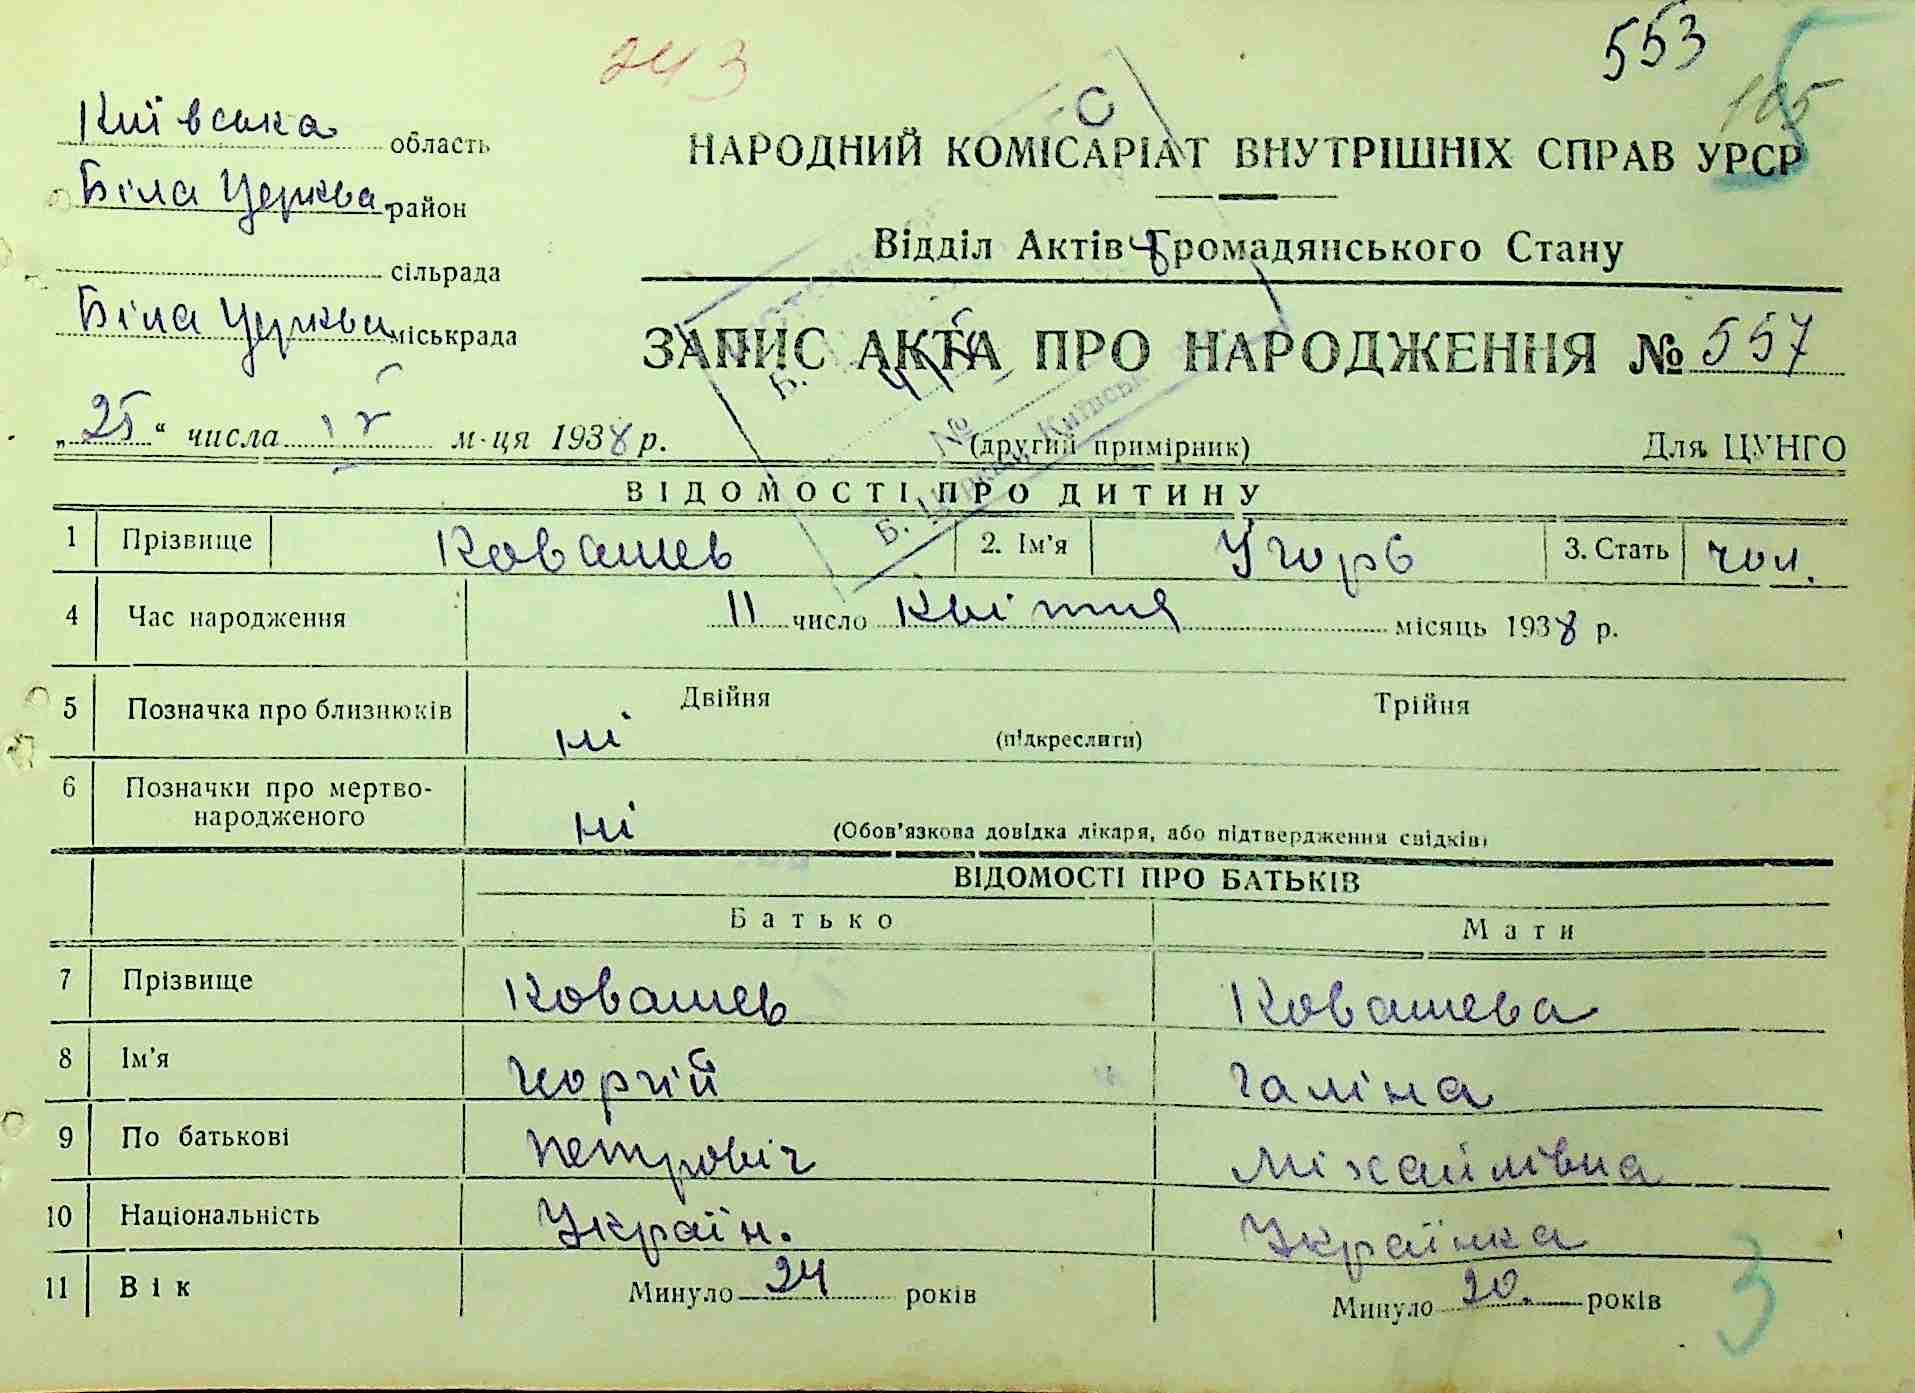 243
553
105
Київська область
НАРОДНИЙ КОМІСАРІАТ ВНУТРІШНІХ СПРАВ УРСР
Біла Церква район
Відділ Актів Громадянського Стану
сільрада
Біла Церква міськрада
ЗАПИС АКТА ПРО НАРОДЖЕННЯ № 557
„25“ числа IV м-ця 1938 р.
(другий примірник)
Для ЦУНГО
ВІДОМОСТІ ПРО ДИТИНУ
1 Прізвище Ковашев 2. Ім'я Угорь 3. Стать чол.
4 Час народження 11 число Квітня місяць 1938 р.
5 Позначка про близнюків ні Двійня (підкреслити) Трійня
6 Позначки про мертво-
народженого ні (Обов'язкова довідка лікаря, або підтвердження свідків)
ВІДОМОСТІ ПРО БАТЬКІВ
Батько Мати
7 Прізвище Ковашев Ковашева
8 Ім'я Георгій Галіна
9 По батькові Петровіч Міхайлівна
10 Національність Україн. Українка
11 Вік Минуло 24 років Минуло 20. років
3